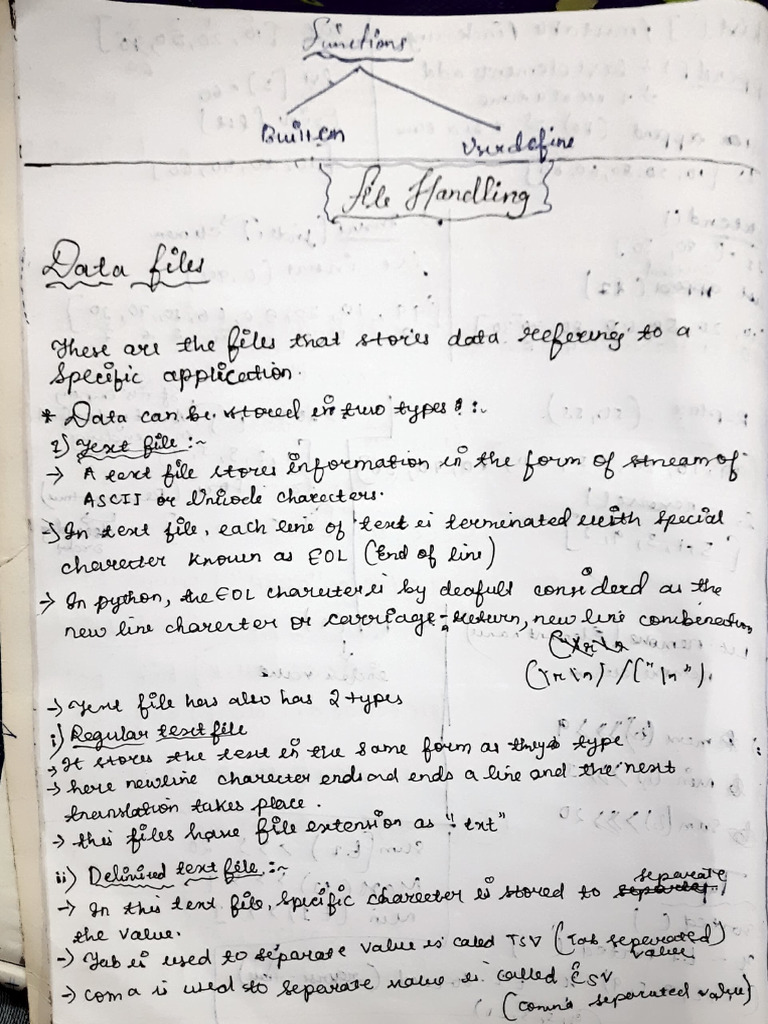 Functions
Builten Userdefine
File Handling
Data files
These are the files that stores data refering to a
specific application.
* Data can be stored in two types :-
1) Text file :-
→ A text file stores information in the form of stream of
ASCII or Unicode charecters.
→ In text file, each line of text is terminated with special
charecter known as EOL (End of line)
→ In python, the EOL charecter is by deafult considerd as the
new line charecter or carriage-return, new line combination
(\r\n) / ("\n").
→ Text file has also has 2 types
i) Regular text file
→ It stores the text in the same form as they type
→ here newline charecter ends and ends a line and the next
translation takes place.
→ this files have file extension as "txt"
ii) Delimited text file :-
→ In this text file, specific charecter is stored to separate
the value.
→ Tab is used to separate value is caled TSV (Tab seperated
value)
→ coma is used to separate value is called CSV
(comma separated value)